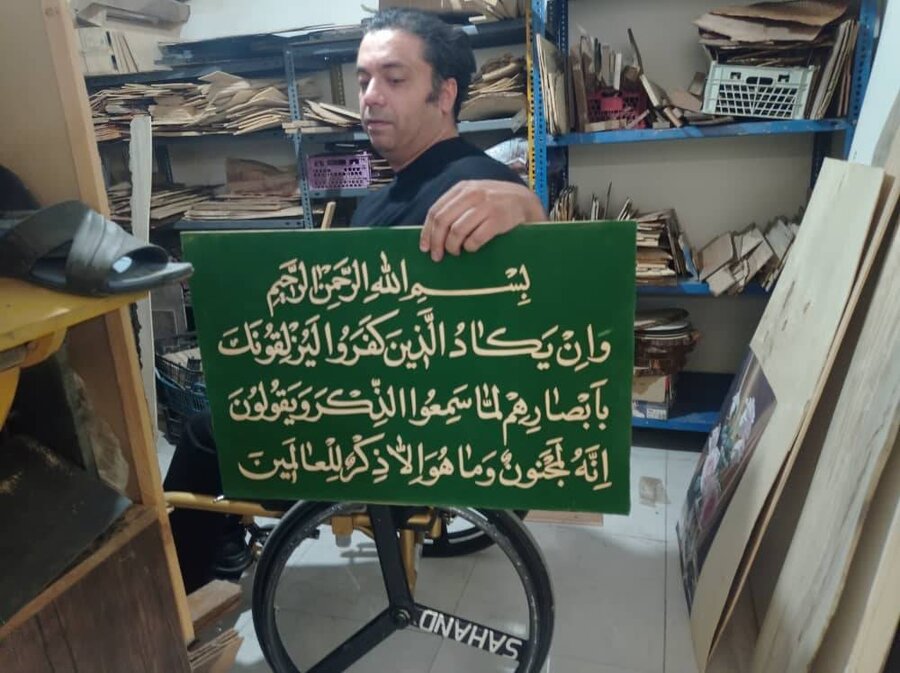 بِسْمِ اللهِ الرَّحْمٰنِ الرَّحٖیمِ
وَاِنْ یَکَادُ الَّذٖینَ کَفَرُوا لَیُزْلِقُونَکَ
بِاَبْصَارِهِمْ لَمَّا سَمِعُوا الذِّکْرَ وَ یَقُولُونَ
اِنَّهُ لَمَجْنُونٌ وَمَا هُوَ اِلَّا ذِکْرٌ لِلْعَالَمٖینَ
SAHAND